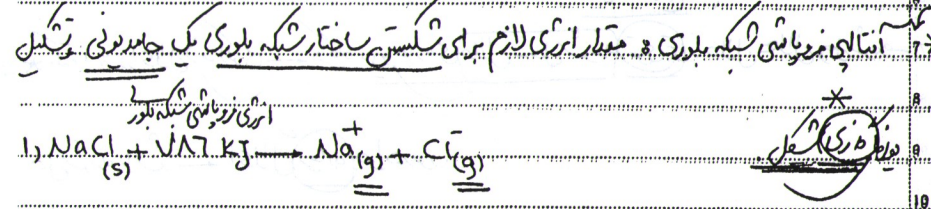 نکته آنتالپی فروپاشی شبکه بلوری: مقدار انرژی لازم برای شکستن ساختار شبکه بلوری یک جامد یونی و تشکیل
7
8
انرژی فروپاشی شبکه بلور
1) NaCl(s) + ۷۸۶ kJ → Na+(g) + Cl-(g) یون های گازی شکل.
9
10